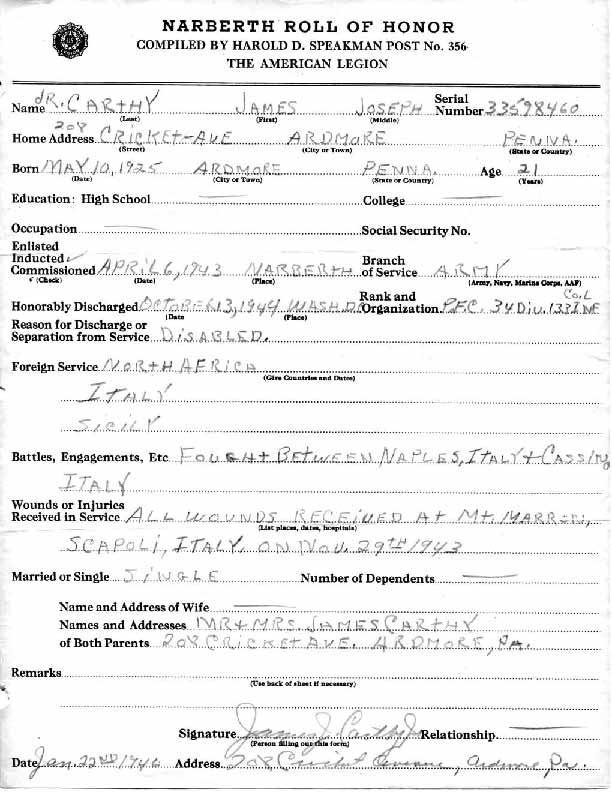 NARBERTH ROLL OF HONOR
COMPILED BY HAROLD D. SPEAKMAN POST No. 356
THE AMERICAN LEGION
Name JR. CARTHY JAMES JOSEPH Serial Number 33598460
(Last) (First) (Middle)
Home Address 208 CRICKET-AVE ARDMORE PENNA.
(Street) (City or Town) (State or Country)
Born MAY 10, 1925 ARDMORE PENNA. Age 21
(Date) (City or Town) (State or Country) (Years)
Education: High School College
Occupation Social Security No.
Enlisted
Inducted ✓ Branch
Commissioned APRIL 6, 1943 NARBERTH of Service ARMY
✓ (Check) (Date) (Place) (Army, Navy, Marine Corps, AAF)
Rank and Co. L
Honorably Discharged OCTOBER 13, 1944 WASH DC Organization PFC. 34 Div. 133 INF
(Date (Place)
Reason for Discharge or
Separation from Service DISABLED.
Foreign Service NORTH AFRICA
(Give Countries and Dates)
ITALY
SICILY
Battles, Engagements, Etc FOUGHT BETWEEN NAPLES, ITALY + CASSINO
ITALY
Wounds or Injuries
Received in Service ALL WOUNDS RECEIVED AT Mt.
(List places, dates, hospitals)
SCAPOLI, ITALY. ON NOV. 29TH 1943
Married or Single SINGLE Number of Dependents
Name and Address of Wife
Names and Addresses MR + MRS. JAMES CARTHY
of Both Parents 208 CRICKET AVE. ARDMORE, PA.
Remarks
(Use back of sheet if necessary)
Signature James J Carthy Jr Relationship
(Person filling out this form)
Date Jan. 22ND 1946 Address 208 Cricket Avenue, Ardmore, Pa.